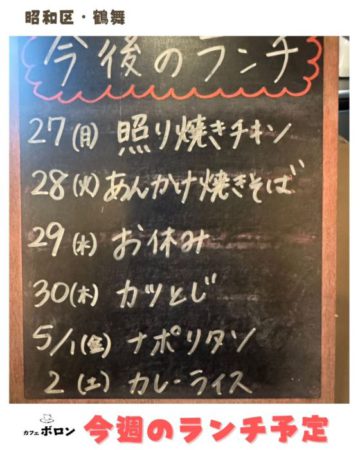 昭和区・鶴舞
今後のランチ
27(月) 照り焼きチキン
28(火) あんかけ焼きそば
29(水) お休み
30(木) カツとじ
5/1(金) ナポリタン
2(土) カレーライス
カフェ ボロン
今週のランチ予定